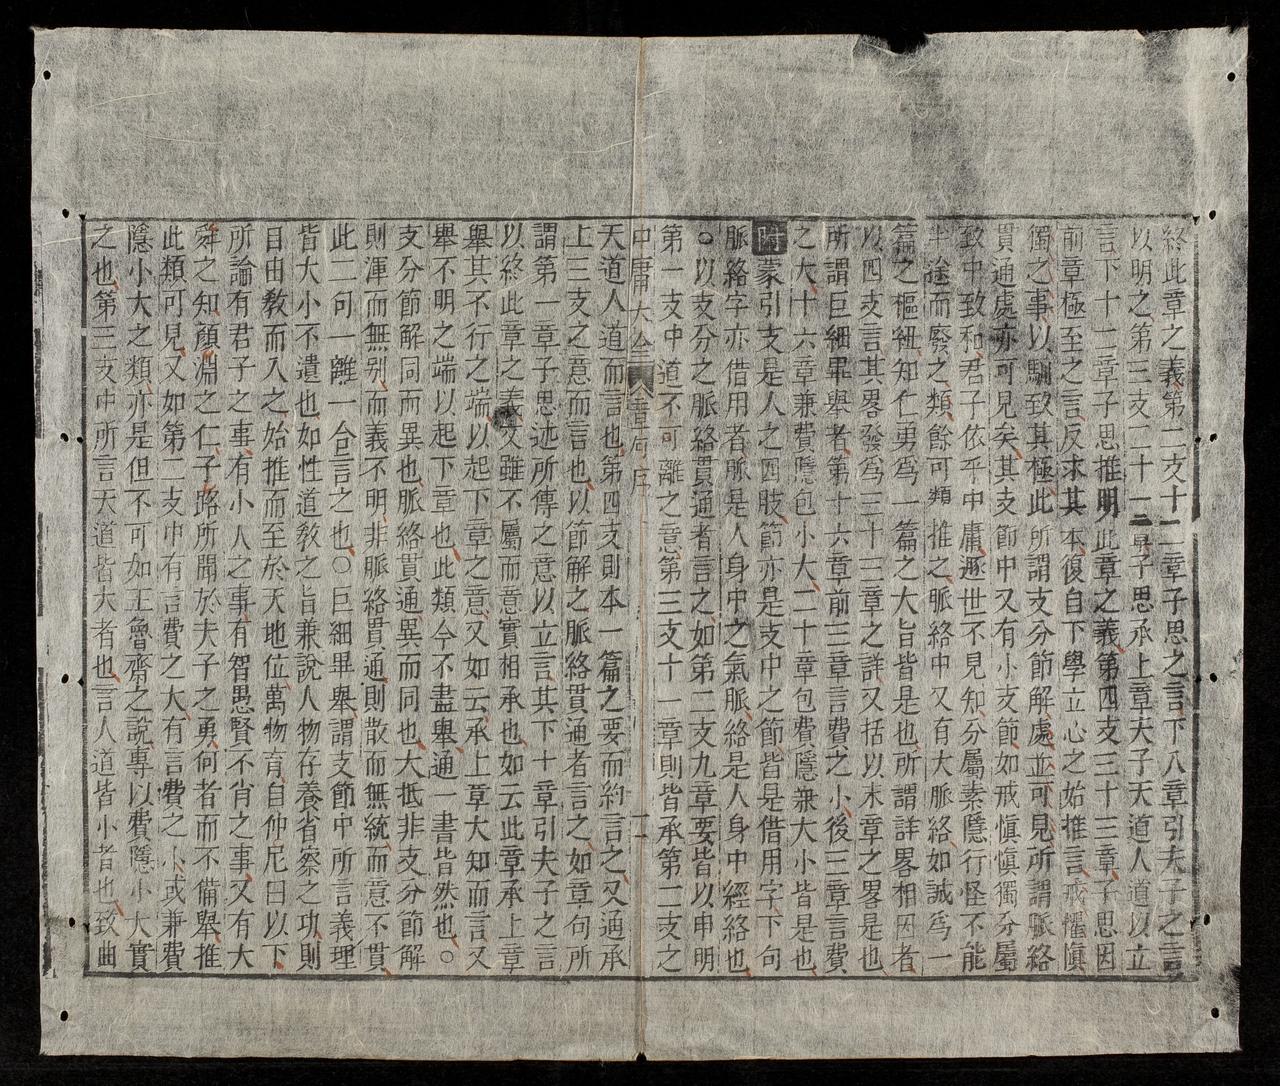 終此章之義第二支十二章子思之言下八章引夫子之言
以明之第三支二十一章子思承上章夫子天道人道以立
言下十一章子思推明此章之義第四支三十三章子思因
前章極至之言反求其本復自下學立心之始推言戒懼愼
獨之事以馴致其極此所謂支分節解處並可見所謂脈絡
貫通處亦可見矣其支節中又有小支節如戒愼愼獨分屬
致中致和君子依乎中庸遯世不見知分屬素隱行怪不能
半途而廢之類餘可類推之脈絡中又有大脈絡如誠爲一
篇之樞紐知仁勇爲一篇之大旨皆是也所謂詳畧相因者
以四支言其畧發爲三十三章之詳又括以末章之畧是也
所謂巨細畢舉者第十六章前三章言費之小後三章言費
之大十六章兼費隱包小大二十章包費隱兼大小皆是也
附蒙引支是人之四肢節亦是支中之節皆是借用字下句
脈絡字亦借用者脈是人身中之氣脈絡是人身中經絡也
○以支分之脈絡貫通者言之如第二支九章要皆以申明
第一支中道不可離之意第三支十一章則皆承第二支之
中庸大全 章句序 十一
天道人道而言也第四支則本一篇之要而約言之又通承
上三支之意而言也以節解之脈絡貫通者言之如章句所
謂第一章子思述所傳之意以立言其下十章引夫子之言
以終此章之義又雖不屬而意實相承也如云此章承上章
舉其不行之端以起下章之意又如云承上章大知而言又
舉不明之端以起下章也此類今不盡舉通一書皆然也○
支分節解同而異也脈絡貫通異而同也大抵非支分節解
則渾而無别而義不明非脈絡貫通則散而無統而意不貫
此二句一離一合言之也○巨細畢舉謂支節中所言義理
皆大小不遺也如性道敎之旨兼說人物存養省察之功則
自由敎而入之始推而至於天地位萬物育自仲尼曰以下
所論有君子之事有小人之事有智愚賢不肖之事又有大
舜之知顏淵之仁子路所聞於夫子之勇何者而不備舉推
此類可見又如第二支中有言費之大有言費之小或兼費
隱小大之類亦是但不可如王魯齋之說專以費隱小大實
之也第三支中所言天道皆大者也言人道皆小者也致曲